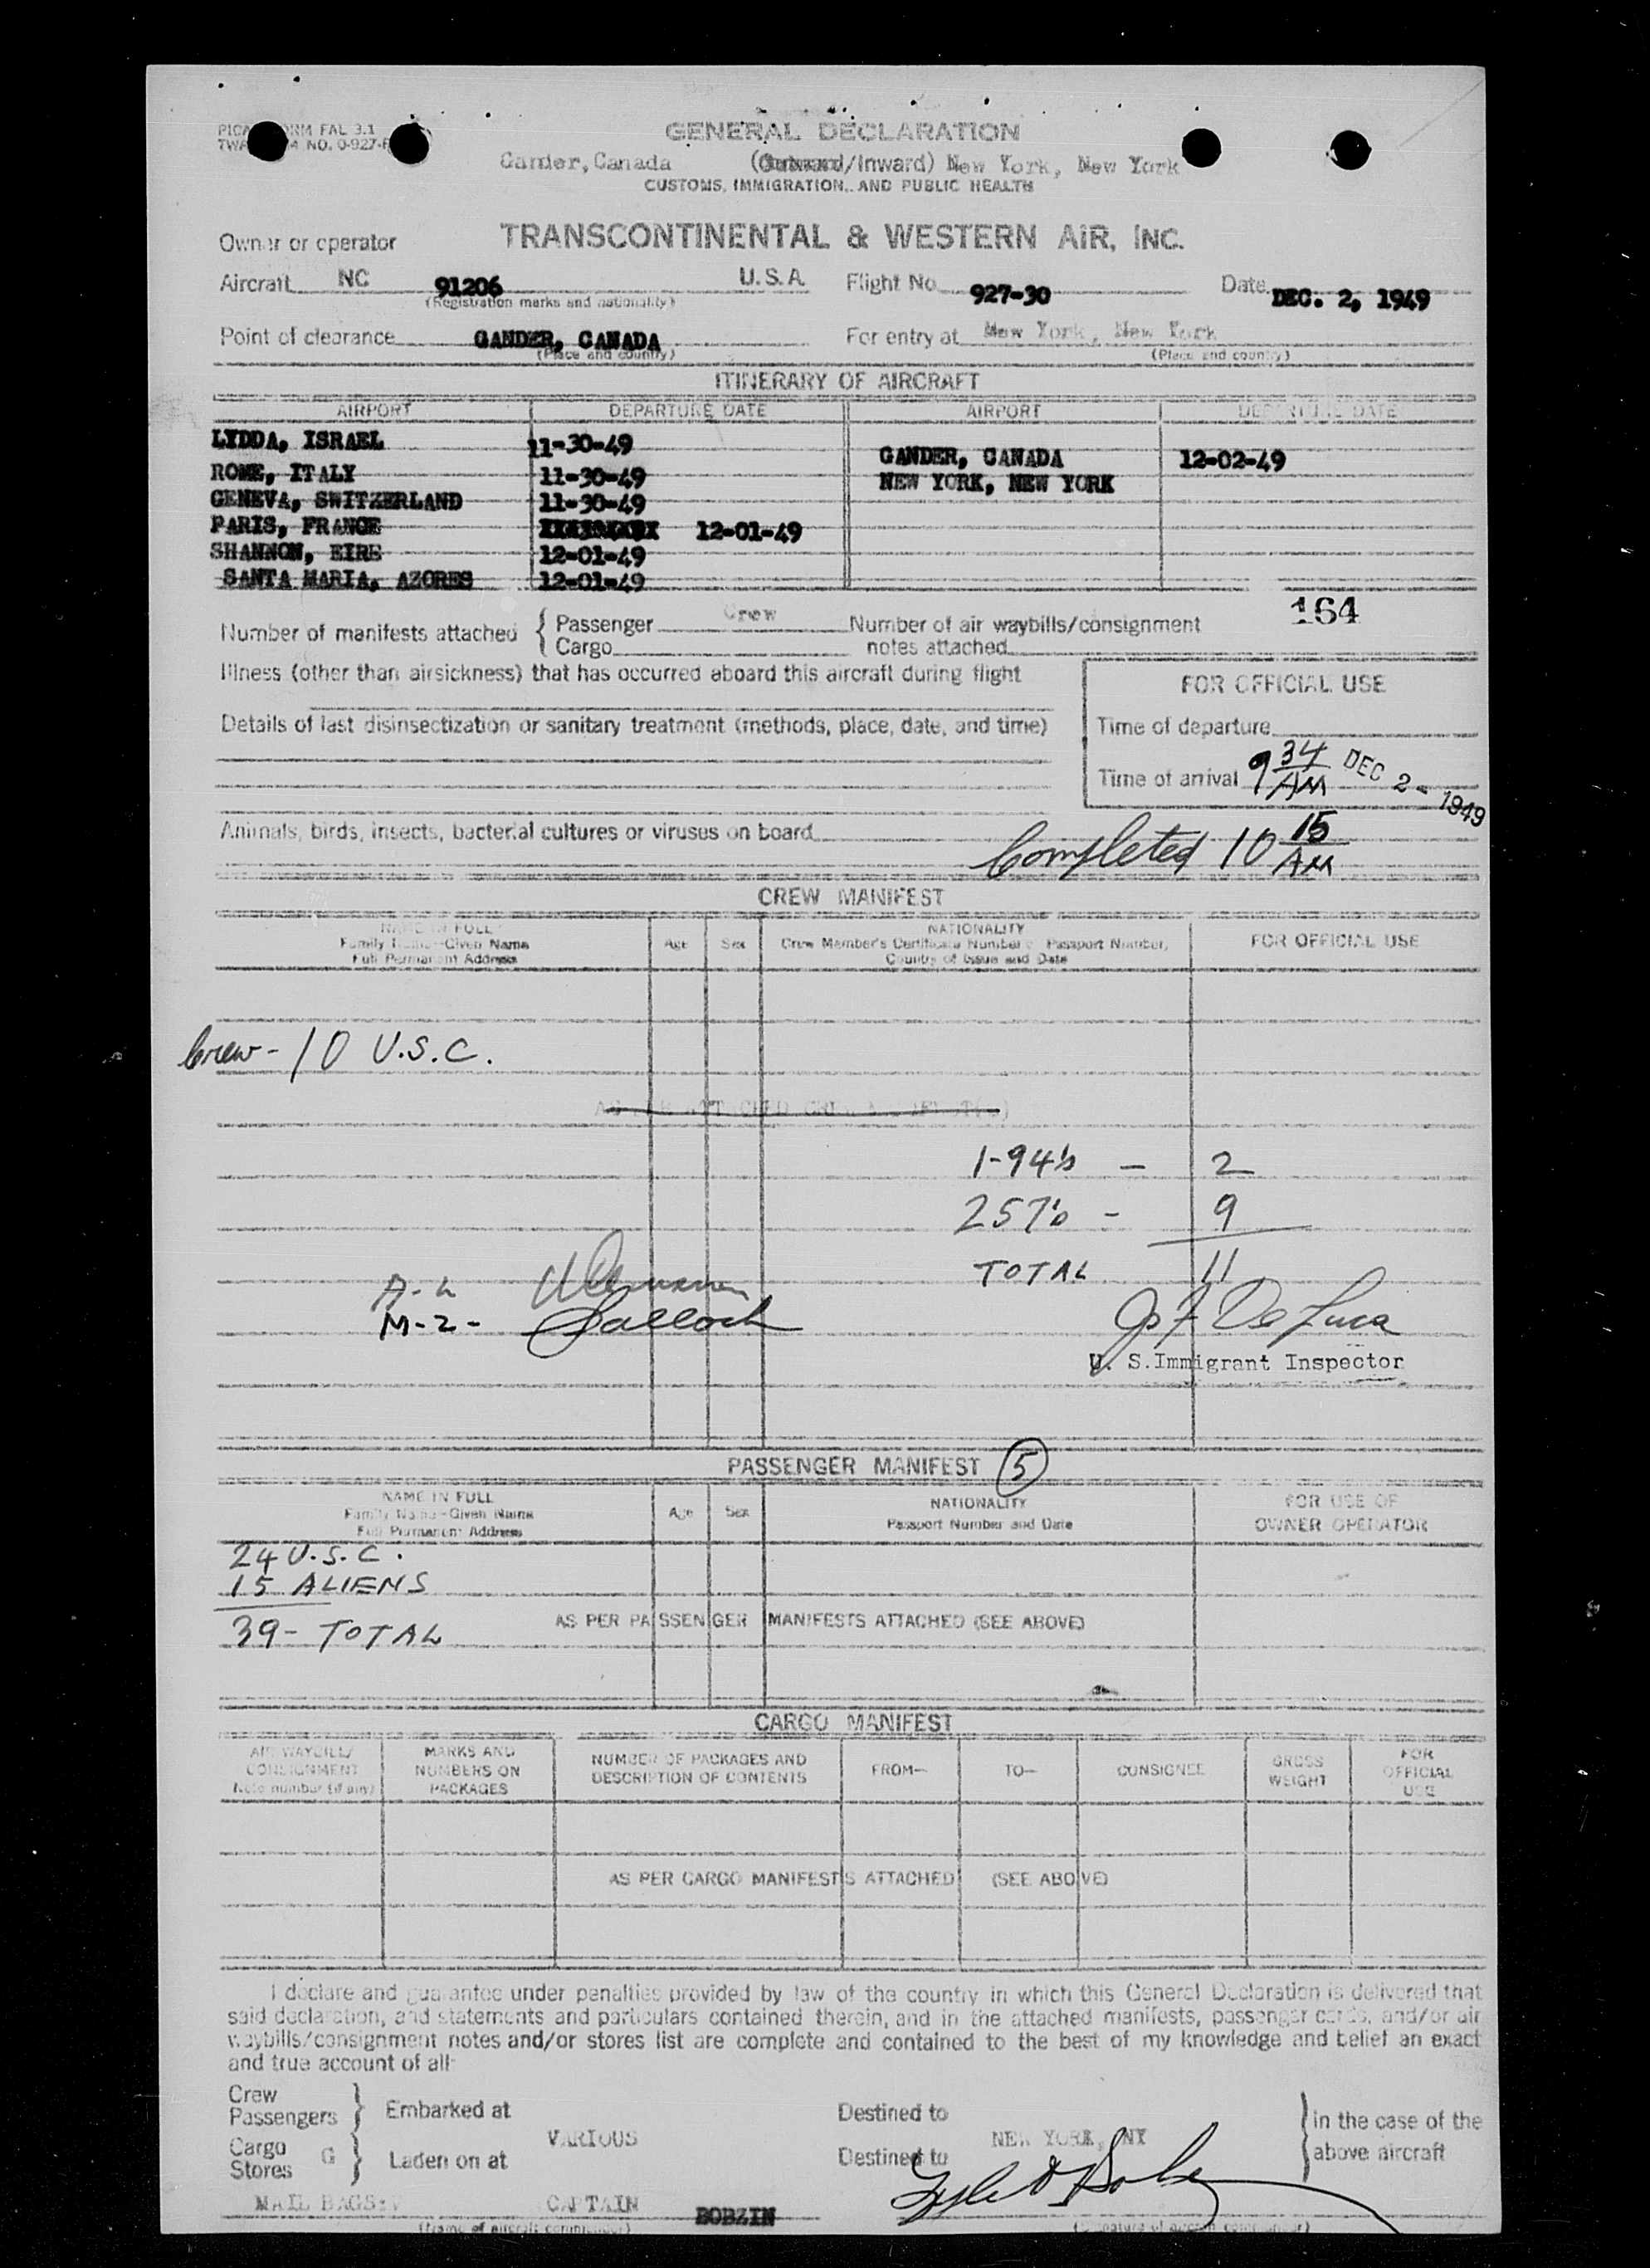 FORM FAL 3.1
NO. 0-927-
GENERAL DECLARATION
Gander, Canada (Outward/Inward) New York, New York
CUSTOMS, IMMIGRATION, AND PUBLIC HEALTH
Owner or operator TRANSCONTINENTAL & WESTERN AIR, INC.
Aircraft NC 91206 U.S.A. Flight No. 927-30 Date DEC. 2, 1949
(Registration marks and nationality)
Point of clearance GANDER, CANADA For entry at New York, New York
(Place and country) (Place and country)
ITINERARY OF AIRCRAFT
AIRPORT DEPARTURE DATE AIRPORT DEPARTURE DATE
LYDDA, ISRAEL 11-30-49 GANDER, CANADA 12-02-49
ROME, ITALY 11-30-49 NEW YORK, NEW YORK
GENEVA, SWITZERLAND 11-30-49
PARIS, FRANCE 12-01-49
SHANNON, EIRE 12-01-49
SANTA MARIA, AZORES 12-01-49
164
Number of manifests attached { Passenger Crew Number of air waybills/consignment
Cargo notes attached
Illness (other than airsickness) that has occurred aboard this aircraft during flight
FOR OFFICIAL USE
Details of last disinsectization or sanitary treatment (methods, place, date, and time)
Time of departure
Time of arrival 9 34 AM DEC 2 - 1949
Animals, birds, insects, bacterial cultures or viruses on board
Completed 10 15 AM
CREW MANIFEST
NAME IN FULL
Family Name-Given Name
Full Permanent Address
Age Sex
NATIONALITY
Crew Member's Certificate Number Passport Number,
Country of Issue and Date
FOR OFFICIAL USE
Crew - 10 U.S.C.
AS PER ATTACHED CREW
I-94's - 2
257's - 9
TOTAL 11
A-L
M-2-
Jos F De Luca
U. S. Immigrant Inspector
PASSENGER MANIFEST 5
NAME IN FULL
Family Name-Given Name
Full Permanent Address
Age Sex
NATIONALITY
Passport Number and Date
FOR USE OF
OWNER OPERATOR
24 U.S.C.
15 ALIENS
39- TOTAL
AS PER PASSENGER MANIFESTS ATTACHED (SEE ABOVE)
CARGO MANIFEST
AIR WAYBILL/
CONSIGNMENT
Note number (if any)
MARKS AND
NUMBERS ON
PACKAGES
NUMBER OF PACKAGES AND
DESCRIPTION OF CONTENTS
FROM—
TO—
CONSIGNEE
GROSS
WEIGHT
FOR
OFFICIAL
USE
AS PER CARGO MANIFESTS ATTACHED (SEE ABOVE)
I declare and guarantee under penalties provided by law of the country in which this General Declaration is delivered that
said declaration, and statements and particulars contained therein, and in the attached manifests, passenger cards, and/or air
waybills/consignment notes and/or stores list are complete and contained to the best of my knowledge and belief an exact
and true account of all-
Crew
Passengers } Embarked at Destined to
VARIOUS NEW YORK, NY
Cargo G
Stores } Laden on at Destined to
in the case of the
above aircraft
MAIL BAGS CAPTAIN BOBZIN
(Name of aircraft commander) (Signature of aircraft commander)